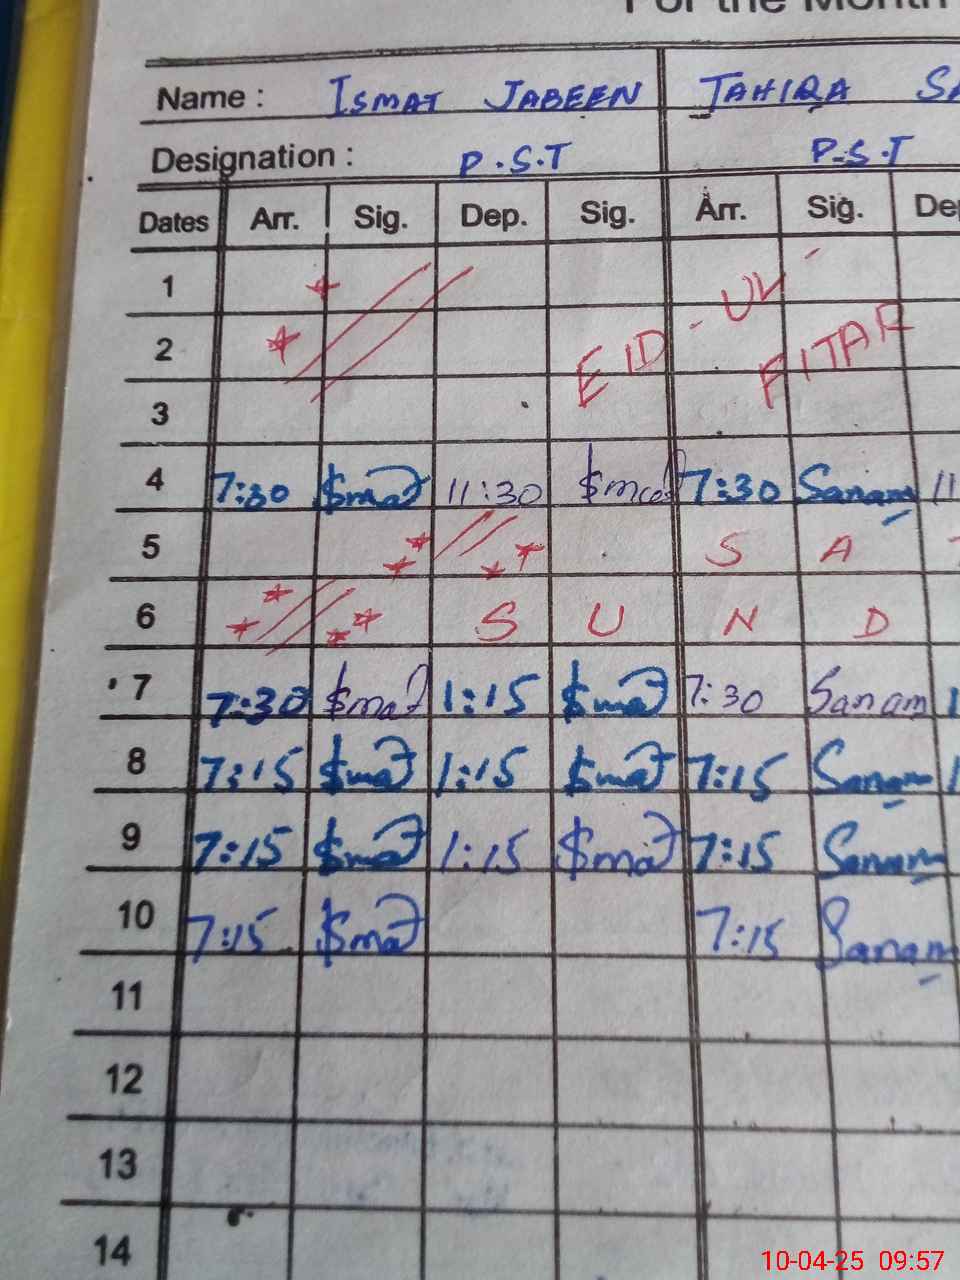 For the Month
Name : ISMAT JABEEN TAHIRA SA
Designation : P.S.T P.S.T
Dates Arr. Sig. Dep. Sig. Arr. Sig. Dep
1
2
3
EID - UL - FITAR
4 7:30 $mat 11:30 $mat 7:30 Sanam 11
5 S A
6 S U N D
7 7:30 $mat 1:15 $mat 7:30 Sanam 1
8 7:15 $mat 1:15 $mat 7:15 Sanam 1
9 7:15 $mat 1:15 $mat 7:15 Sanam
10 7:15 $mat 7:15 Sanam
11
12
13
14
10-04-25 09:57